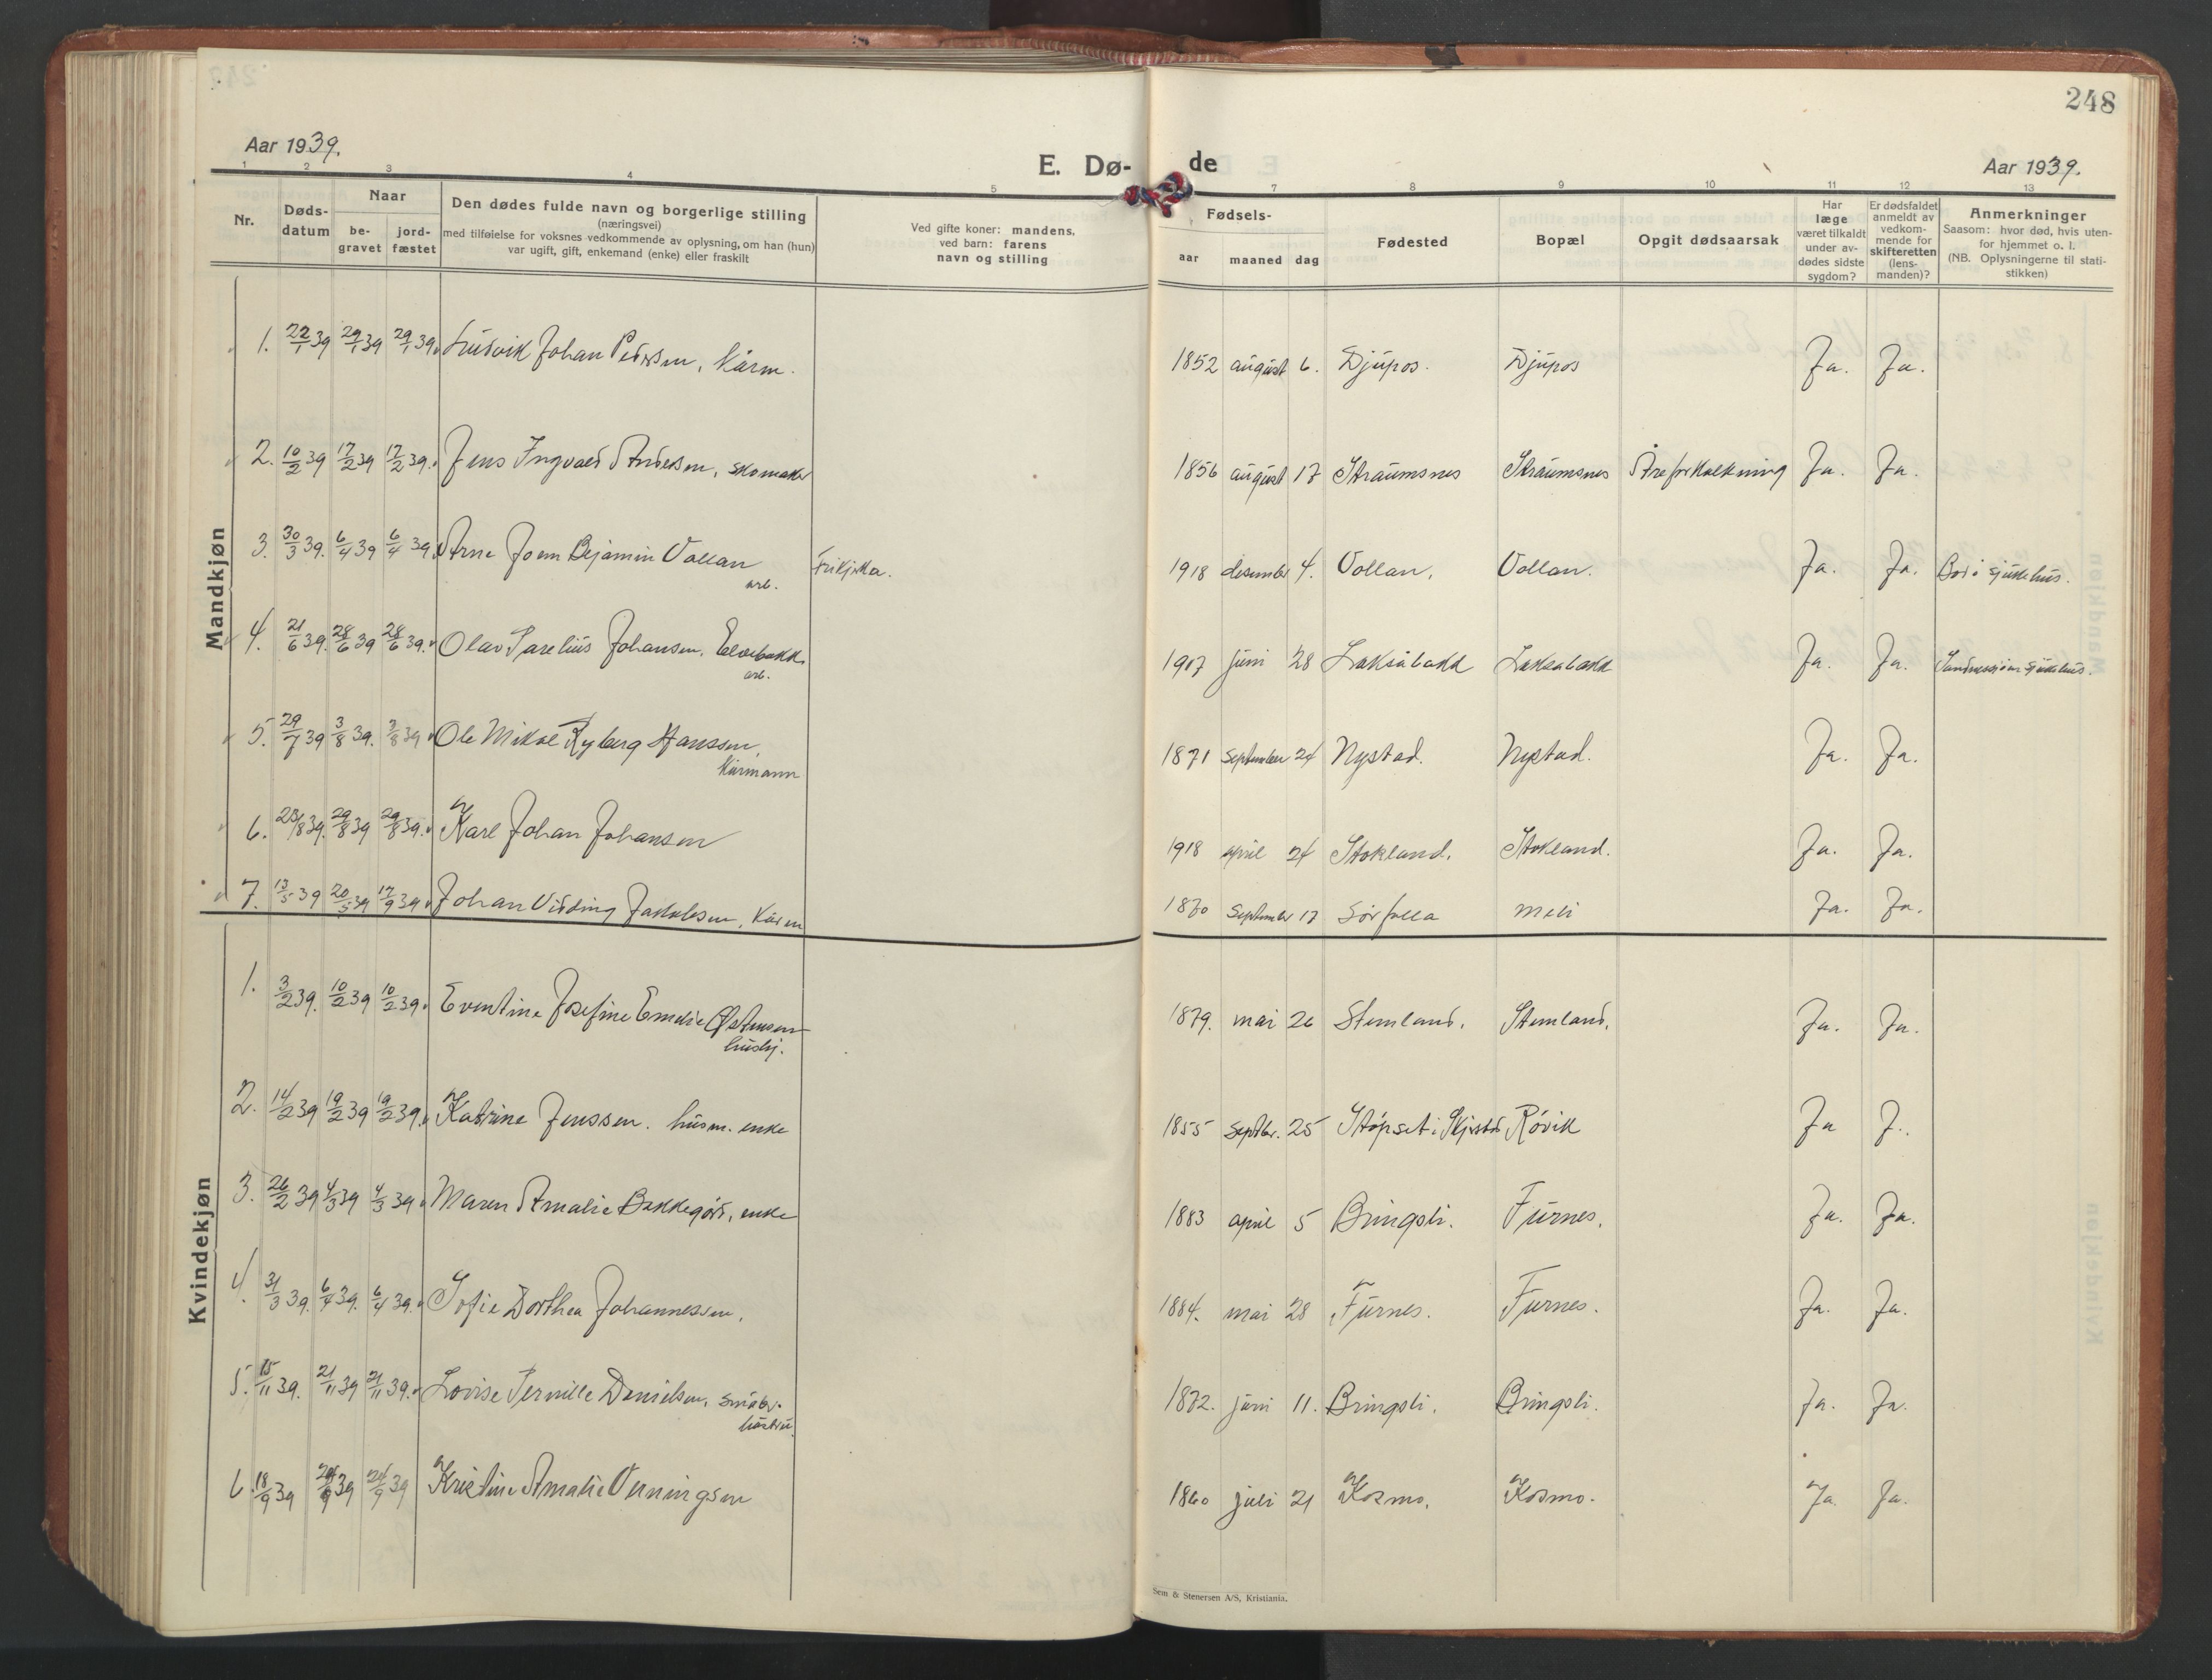 248
Aar 1939.
E. Dø-
de
Aar 1939.
1 2 3 4 5 7 8 9 10 11 12 13
Nr.
Døds-
datum
Naar
be-
gravet
jord-
fæstet
Den dødes fulde navn og borgerlige stilling
(næringsvei)
med tilføielse for voksnes vedkommende av oplysning, om han (hun)
var ugift, gift, enkemand (enke) eller fraskilt
Ved gifte koner: mandens,
ved barn: farens
navn og stilling
Fødsels-
aar maaned dag
Fødested
Bopæl
Opgit dødsaarsak
Har
læge
været tilkaldt
under av-
dødes sidste
sygdom?
Er dødsfaldet
anmeldt av
vedkom-
mende for
skifteretten
(lens-
manden)?
Anmerkninger
Saasom: hvor død, hvis uten-
for hjemmet o. l.
(NB. Oplysningerne til stati-
stikken)
Mandkjøn
1. 22/1 39 29/1 39 29/1 39 Ludvik Johan Pedersen, kårm. 1852 august 6. Djupos. Djupos Ja. Ja.
2. 10/2 39 17/2 39 17/2 39. Jens Ingvald Andersen, skomaker 1856 august 17 Straumsnes Straumsnes Åreforkalkning Ja. Ja.
3. 30/3 39. 6/4 39 6/4 39 Arne Joem Bejamin Vollan Frikjrka. 1918 desember 4. Vollan. Vollan. Ja. Ja. Bodø sjukehus.
arb.
4. 21/6 39. 28/6 39 28/6 39. Olav Parelius Johansen, Elvebakk 1907 juni 28 Laksåbakk Laksabakk Ja. Ja. sjukehus.
arb.
5. 29/7 39 3/8 39. 3/8 39 Ole Mikal Ryberg Hanssen, 1871 september 24 Nystad. Nystad. Ja. Ja.
kårmann
6. 23/8 39. 29/8 39 29/8 39. Karl Johan Johansen 1918 april 24 Stokland. Stokland. Ja. Ja.
7. 13/5 39 20/5 39 17/9 39 Johan Vidding Jakobsen, kårm 1870 september 17 Sørfolla Meli Ja. Ja.
Kvindekjøn
1. 3/2 39. 10/2 39 10/2 39. Eventine Josefine Emelie Østensen 1879. mai 26 Stemland. Stemland. Ja. Ja.
hushj.
2. 14/2 39 19/2 39 19/2 39. Katrine Jenssen. husm. enke 1855 septbr. 25 Støpset i Skjerstad Røvik Ja J.
3. 26/2 39 4/3 39 4/3 39 Maren Amalie Bakkegård, enke 1883 april 5 Bringsli. Furnes. Ja. Ja.
4. 31/3 39. 6/4 39. 6/4 39. Sofie Dorthea Johannessen. 1884. mai 28 Furnes. Furnes. Ja. Ja.
5. 15/11 39. 21/11 39 21/11 39. Lovise Pernille Danielsen, småbr. 1872. juni 11. Bringsli. Bringsli. Ja. Ja.
hustru.
6 18/9 39 24/9 39 24/9 39 Kristine Amalie Venningsen 1860 juli 21 Kosmo. Kosmo. Ja. Ja.
Sem & Stenersen A/S, Kristiania.